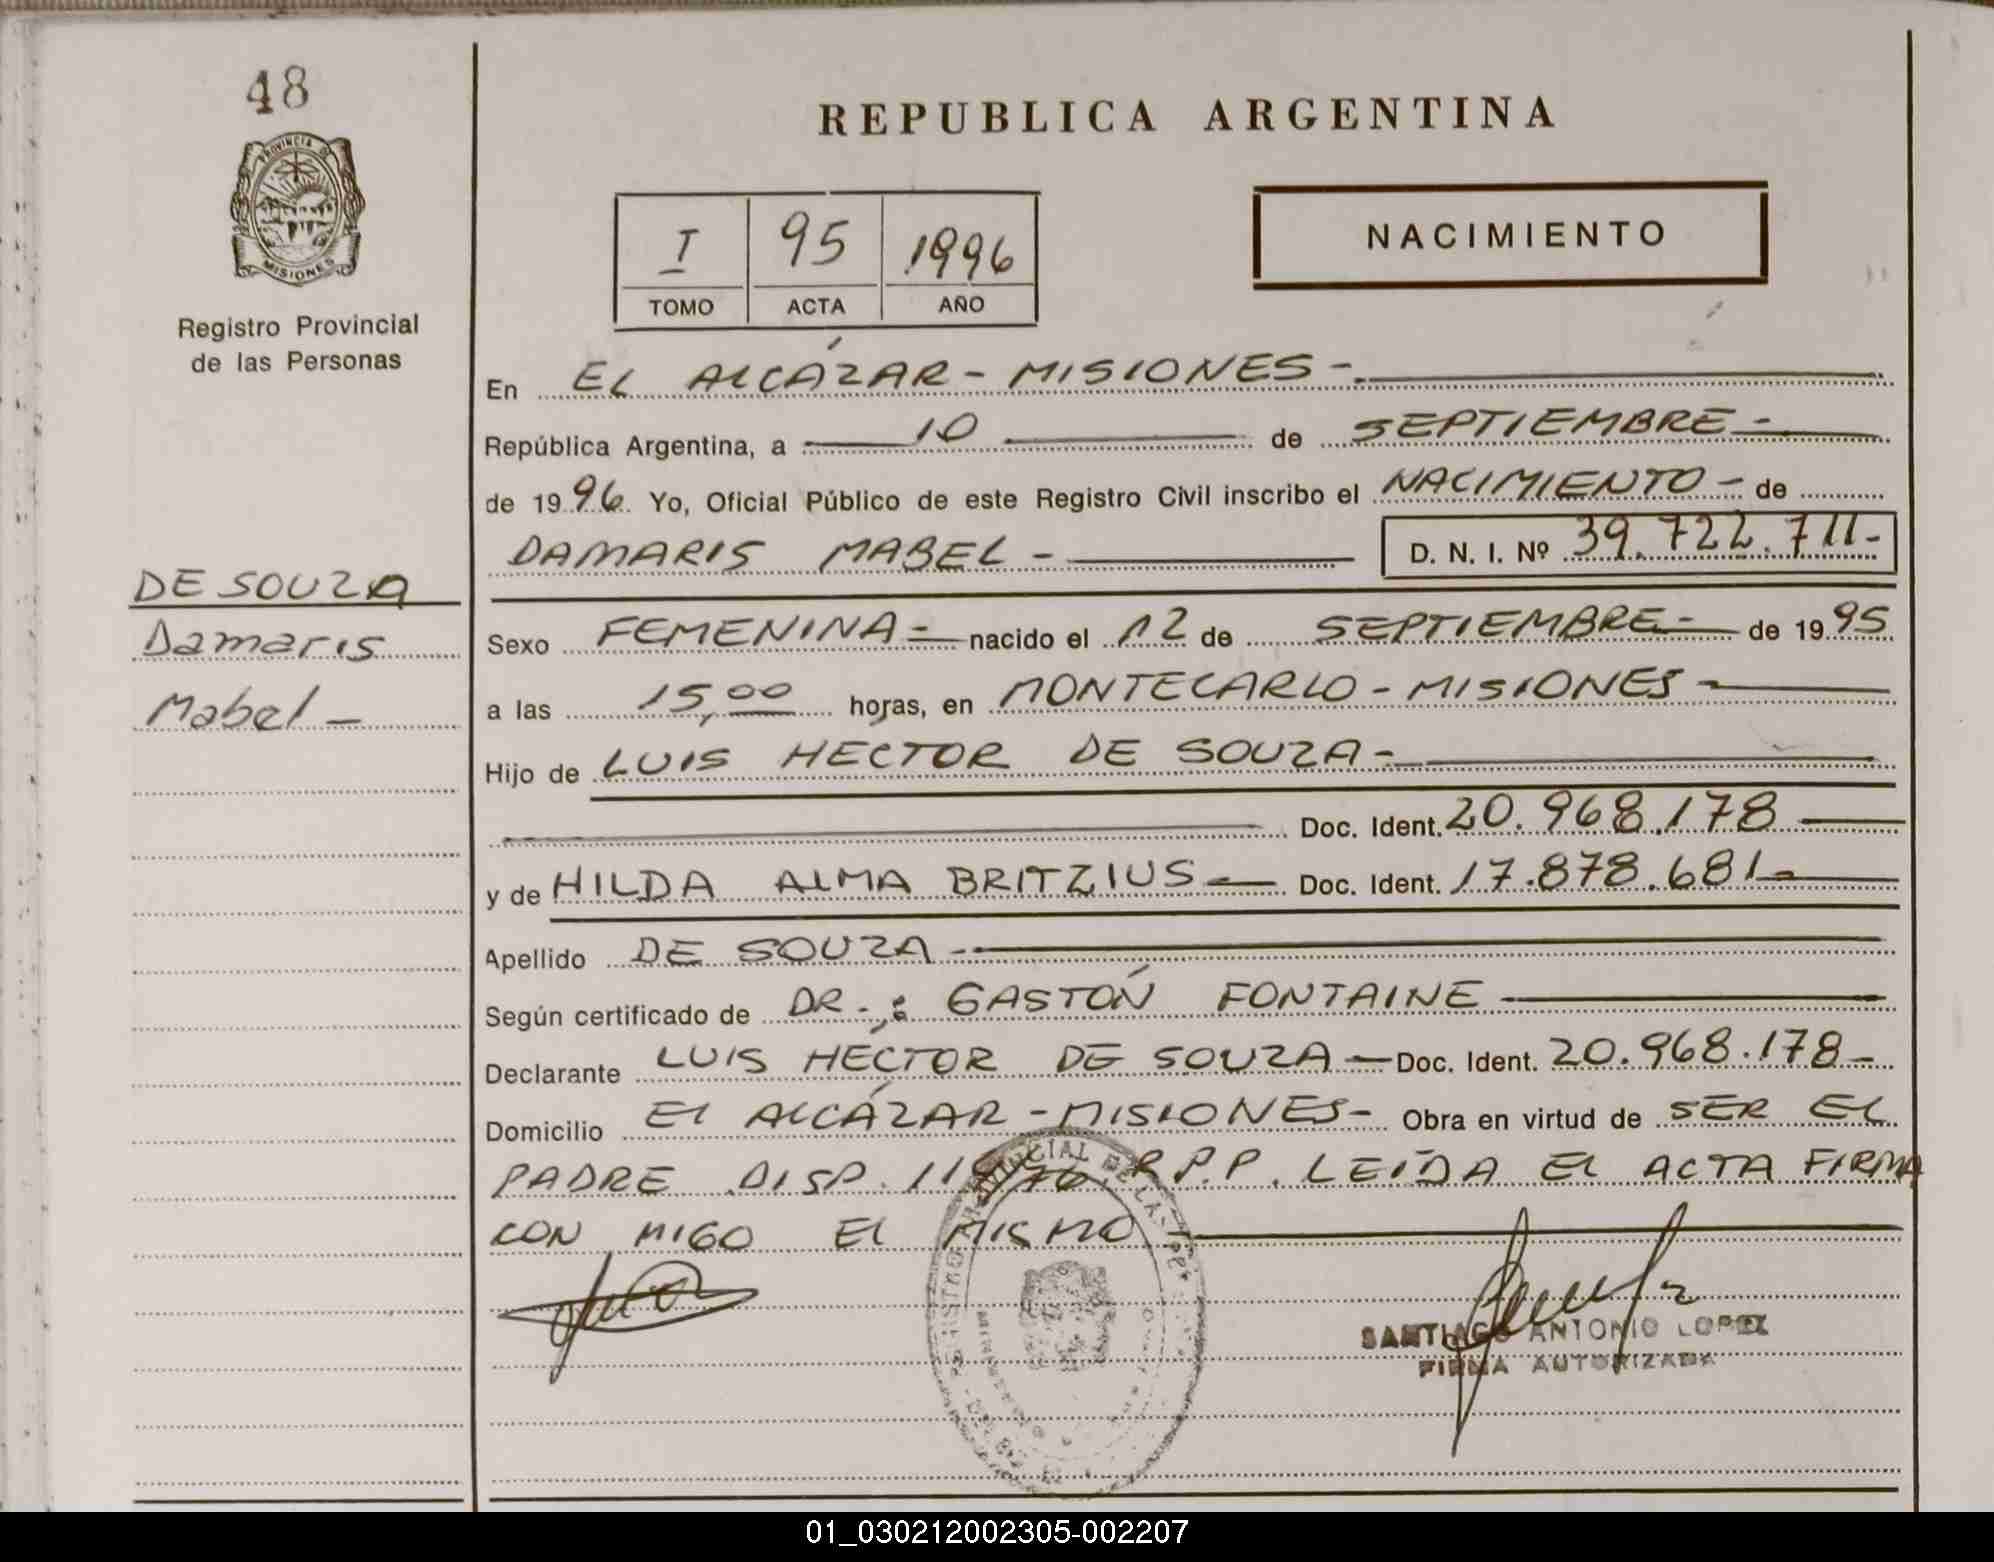 48
PROVINCIA DE
MISIONES
Registro Provincial
de las Personas
DE SOUZA
Damaris
Mabel -
REPUBLICA ARGENTINA
I 95 1996
TOMO ACTA AÑO
NACIMIENTO
En EL ALCÁZAR - MISIONES -
República Argentina, a 10 de SEPTIEMBRE -
de 1996 Yo, Oficial Público de este Registro Civil inscribo el NACIMIENTO - de
DAMARIS MABEL - D. N. I. Nº 39.722.711-
Sexo FEMENINA - nacido el 12 de SEPTIEMBRE - de 1995
a las 15,00 horas, en MONTECARLO - MISIONES -
Hijo de LUIS HECTOR DE SOUZA -
Doc. Ident. 20.968.178
y de HILDA ALMA BRITZIUS - Doc. Ident. 17.878.681-
Apellido DE SOUZA -
Según certificado de DR.: GASTÓN FONTAINE
Declarante LUIS HÉCTOR DE SOUZA - Doc. Ident. 20.968.178-
Domicilio EL ALCÁZAR - MISIONES - Obra en virtud de SER EL
PADRE DISP. R.P.P. LEÍDA EL ACTA FIRMA
CON MIGO EL MISMO
SANTIAGO ANTONIO LOPEZ
FIRMA AUTORIZADA
01_030212002305-002207